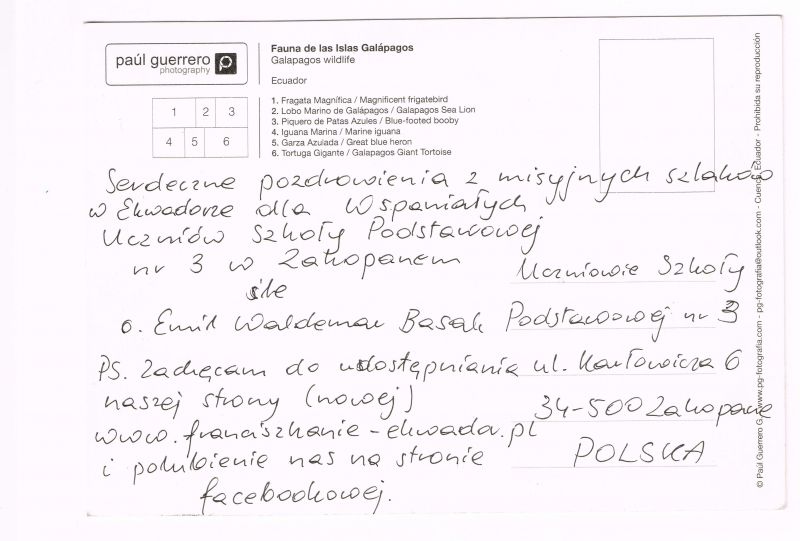 paúl guerrero
photography
Fauna de las Islas Galápagos
Galapagos wildlife
Ecuador
1 2 3
4 5 6
1. Fragata Magnífica / Magnificent frigatebird
2. Lobo Marino de Galápagos / Galapagos Sea Lion
3. Piquero de Patas Azules / Blue-footed booby
4. Iguana Marina / Marine iguana
5. Garza Azulada / Great blue heron
6. Tortuga Gigante / Galapagos Giant Tortoise
Serdeczne pozdrowienia z misyjnych szlaków
w Ekwadorze dla Wspaniałych
Uczniów Szkoły Podstawowej
nr 3 w Zakopanem
śle
o. Emil Waldemar Basak
PS. Zachęcam do udostępniania
naszej strony (nowej)
www.franciszkanie-ekwador.pl
i polubienie nas na stronie
facebookowej.
Uczniowie Szkoły
Podstawowej nr 3
ul. Karłowicza 6
34-500 Zakopane
POLSKA
© Paúl Guerrero G. - www.pg-fotografia.com - pg-fotografia@outlook.com - Cuenca, Ecuador - Prohibida su reproducción